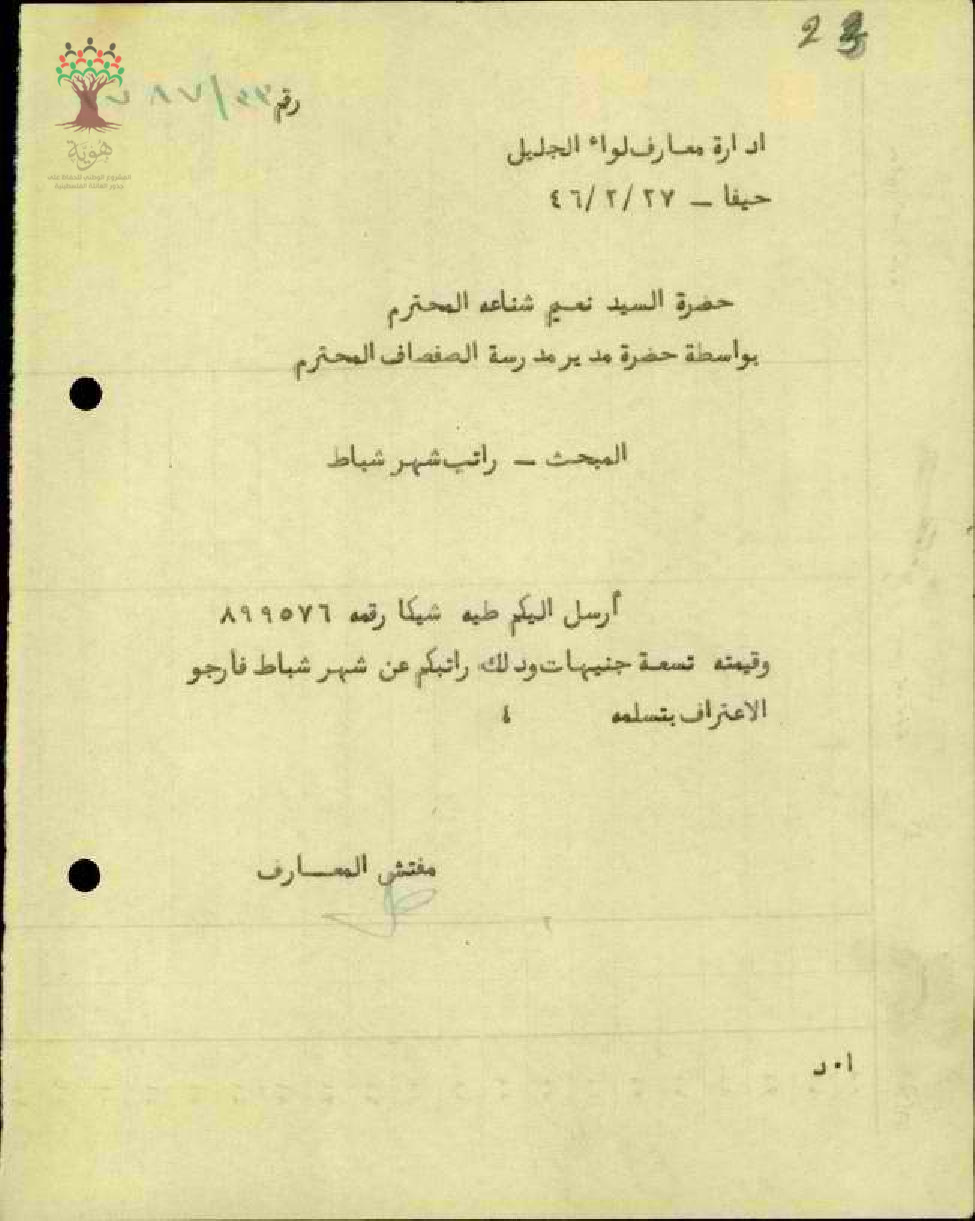 23
هوية
المشروع الوطني للحفاظ على
جذور العائلة الفلسطينية
رقم
ادارة معارف لواء الجليل
حيفا — ٤٦/٢/٢٧
حضرة السيد نعيم شناعه المحترم
بواسطة حضرة مدير مدرسة الصفصاف المحترم
المبحث — راتب شهر شباط
أرسل اليكم طيه شيكا رقمه ٨٩٩٥٧٦
وقيمته تسعة جنيهات ودلك راتبكم عن شهر شباط فارجو
الاعتراف بتسلمه
مفتش المعـــارف
ا٠د